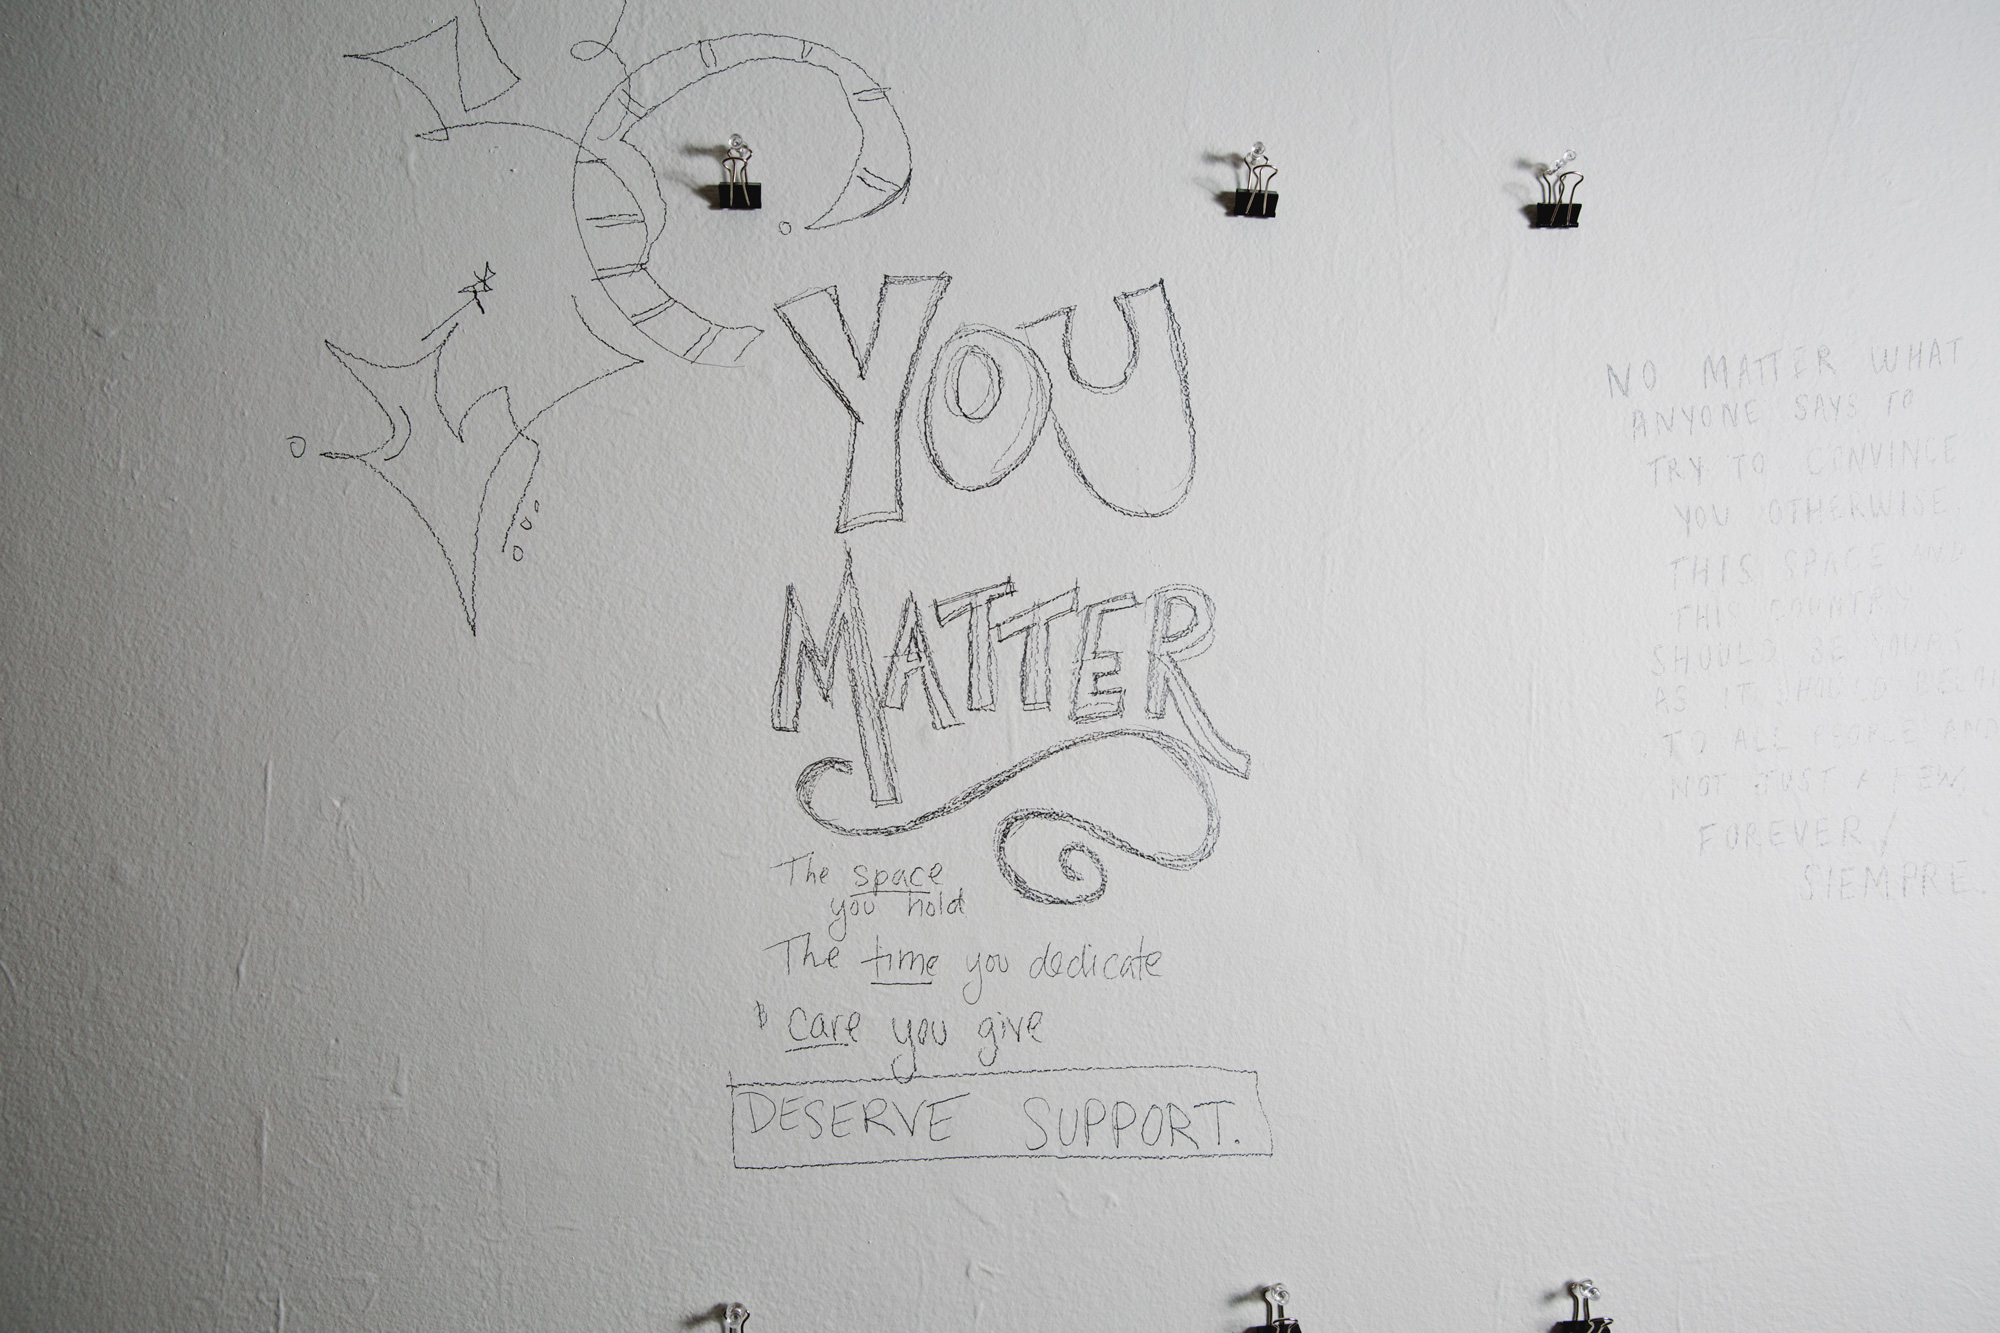 YOU
MATTER
The space
you hold
The time you dedicate
& care you give
DESERVE SUPPORT.
NO MATTER WHAT
ANYONE SAYS TO
TRY TO CONVINCE
YOU OTHERWISE
THIS SPACE AND
THI COUNTRY
SHOULD BE YOURS
AS IT SHOULD
TO ALL PEOPLE AND
NOT JUST A FEW
FOREVER/
SIEMPRE.